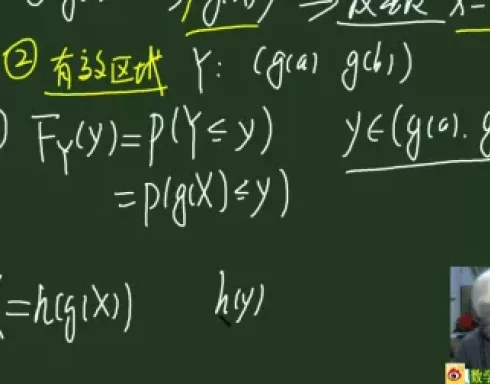 ② 有效区域 Y: (g(a) g(b))
F_Y(y)=P(Y≤y) y∈(g(a), g
=P(g(X)≤y)
=h(g(X)) h(y)
数学